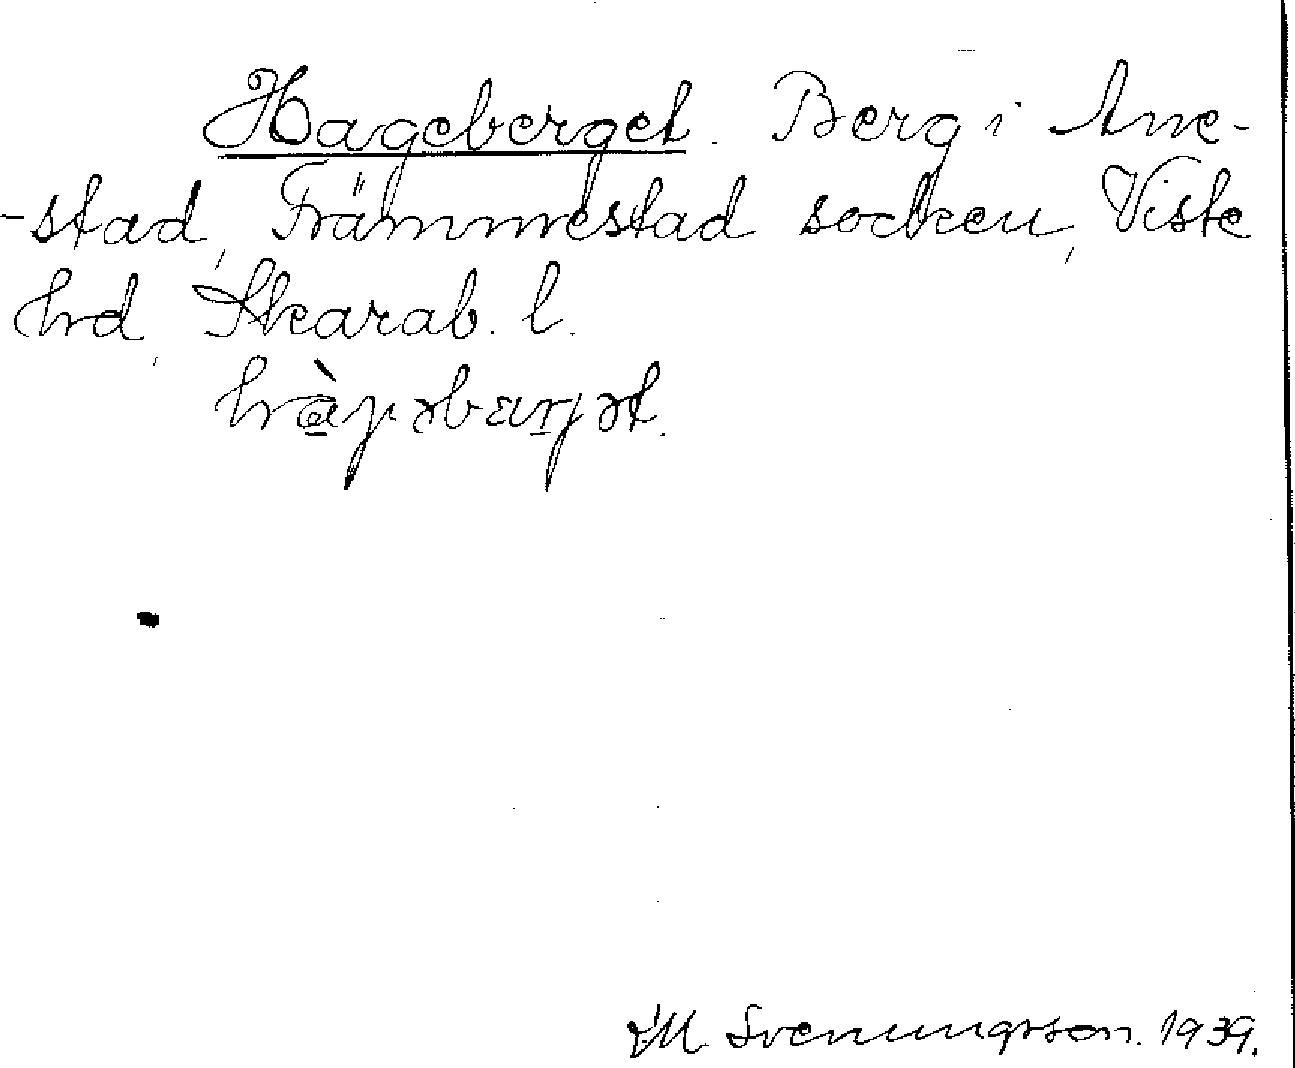 Hageberget. Berg i Ane-
-stad, Främmestad socken, Viste
hrd, Skarab. l.
hàɡəbærjət.
M Svenungsson. 1939.